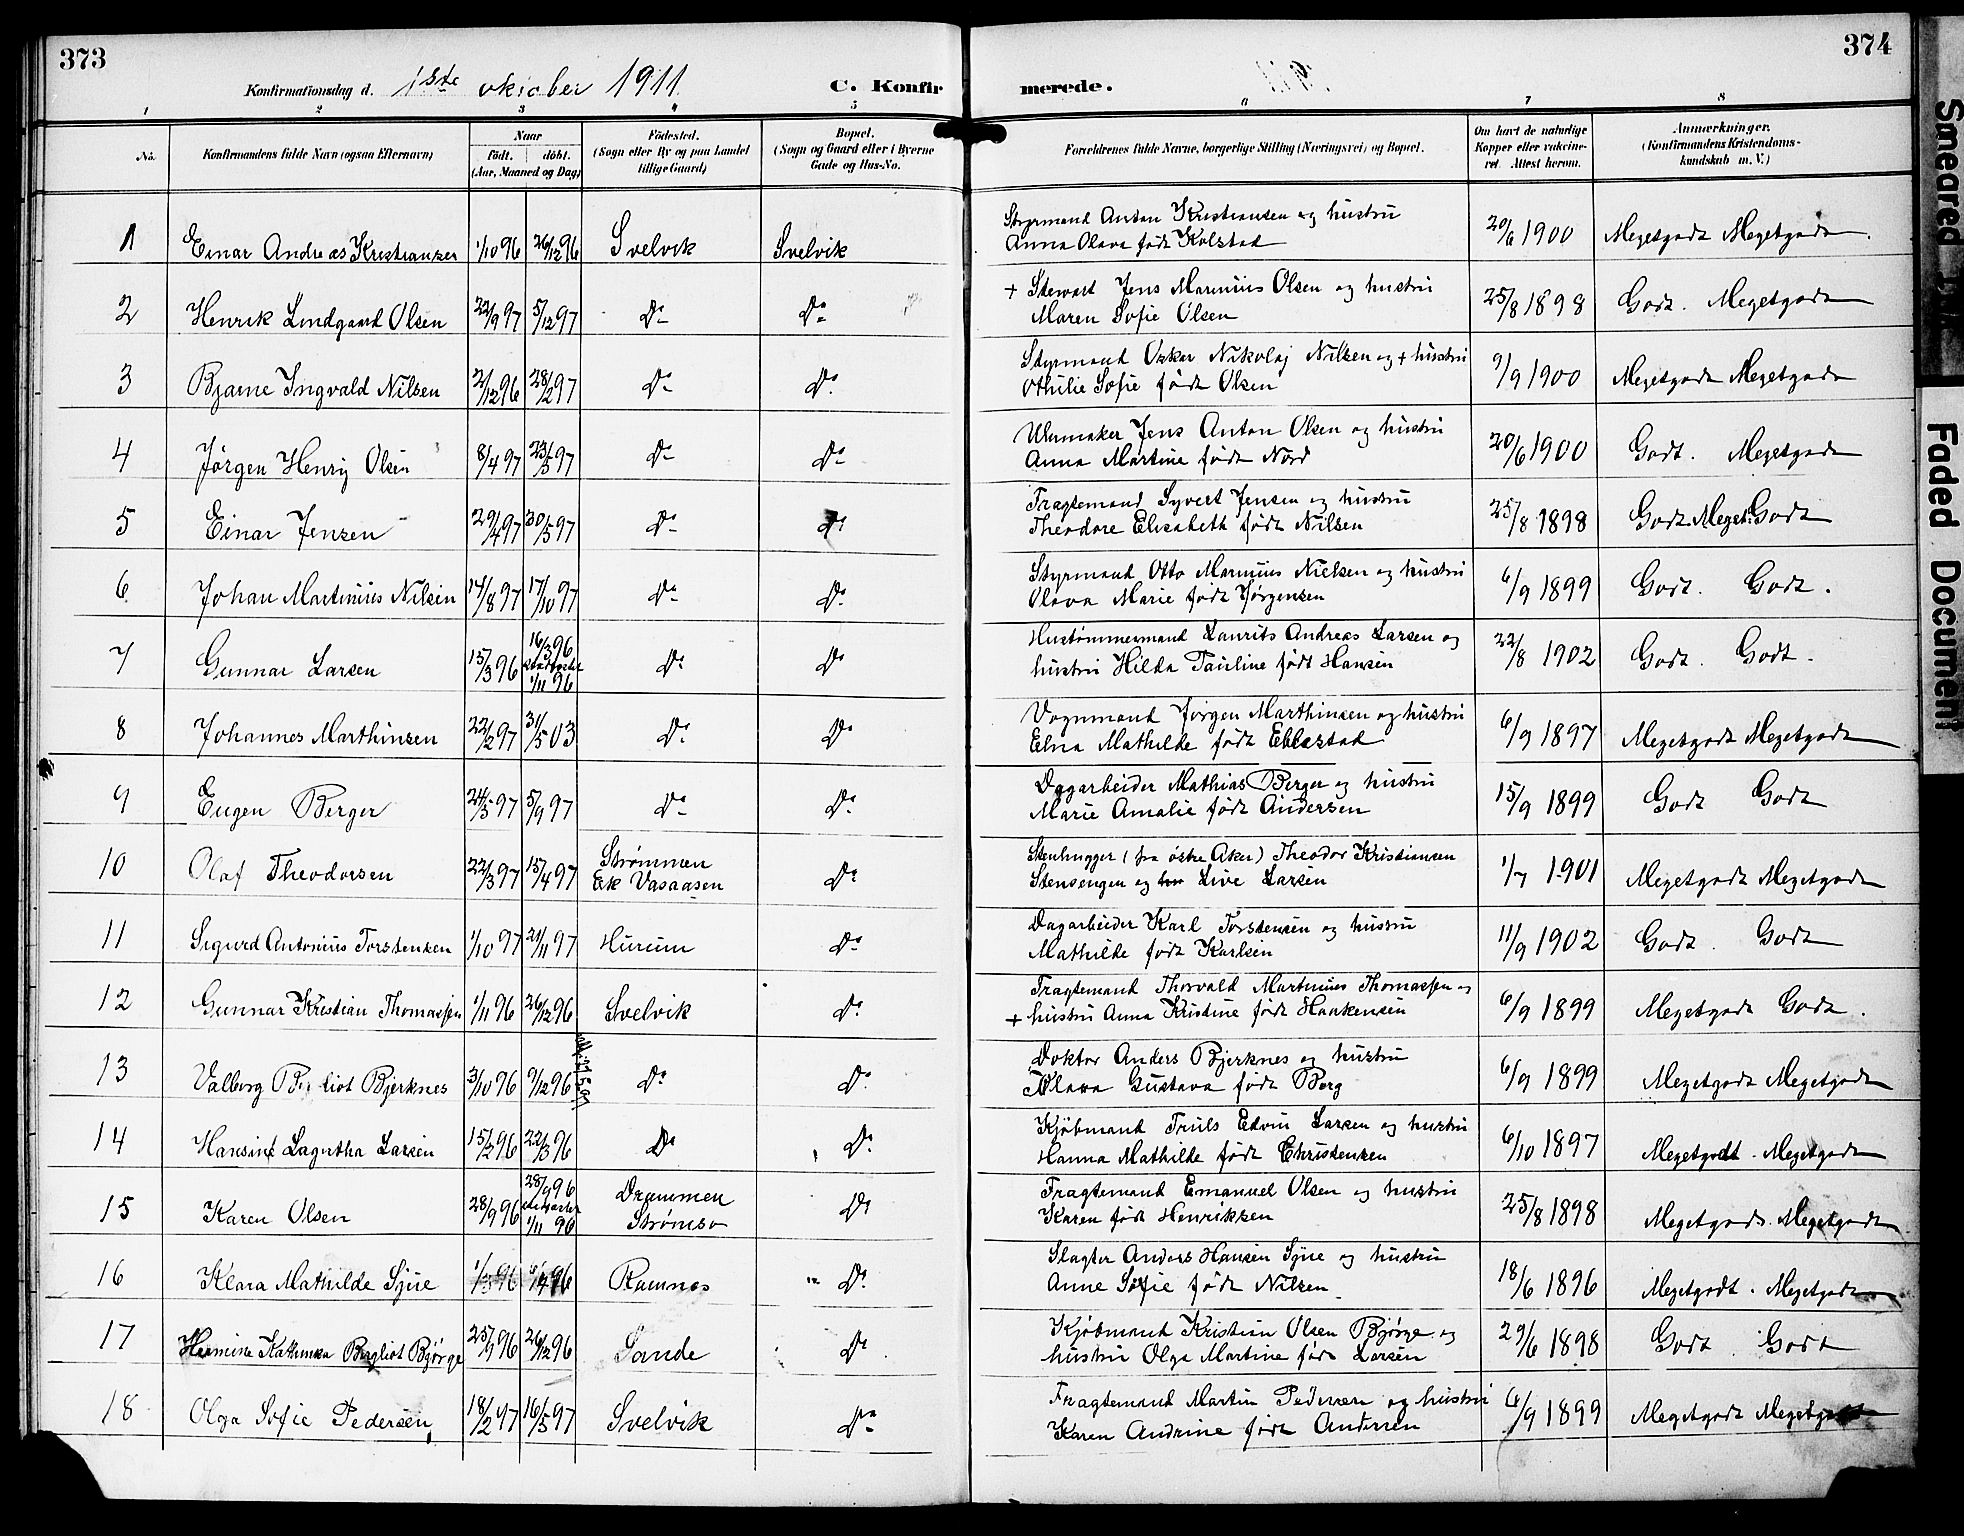 373
374
Konfirmationsdag d. 1ste oktober 1911
C. Konfirmerede.
1 2 3 4 5 6 7 8
No.
Konfirmandens fulde Navn (ogsaa Efternavn)
Naar
født. døbt.
(Aar, Maaned og Dag)
Fødested.
(Sogn eller By og paa Landet
tillige Gaard)
Bopæl.
(Sogn og Gaard eller i Byerne
Gade og Hus-No.
Forældrenes fulde Navne, borgerlige Stilling (Næringsvei) og Bopæl.
Om havt de naturlige
Kopper eller vaccine-
ret. Attest herom.
Anmærkninger.
(Konfirmandens Kristendoms-
kundskab m. V.)
1 Einar Andreas Kristiansen 1/10 96 26/12 96 Svelvik Svelvik
Styrmand Anton Kristiansen og hustru
Anna Olava født Kolstad
20/6 1900 Megetgodt Megetgodt.
2 Henrik Lindgaard Olsen 22/9 97 5/12 97 Do Do
+ Stewart Jens Marinius Olsen og hustru
Maren Sofie Olsen
25/8 1898 Godt. Megetgodt
3 Bjarne Ingvald Nilsen 2/12 96 28/2 97 Do Do
Styrmand Oskar Nikolaj Nilsen og + hustru
Othilie Sofie født Olsen
9/9 1900 Megetgodt Megetgodt
4 Jørgen Henry Olsen 8/4 97 23/5 97 Do Do
Uhrmaker Jens Anton Olsen og hustru
Anna Martine født Nord
20/6 1900 Godt. Megetgodt
5 Einar Jensen 29/4 97 30/5 97 Do Do
Fragtemand Syvert Jensen og hustru
Theodore Elisabeth født Nilsen
25/8 1898 Godt. Meget Godt
6 Johan Martinius Nilsen 14/8 97 17/10 97 Do Do
Styrmand Otto Marinius Nielsen og hustru
Olava Marie født Jørgensen
6/9 1899 Godt. Godt.
7 Gunnar Larsen 15/3 96 16/3 96
1/11 96 Do Do
Hustømmermand Laurits Andreas Larsen og
hustru Hilda Pauline født Hansen
22/8 1902 Godt. Godt.
8 Johannes Marthinsen 22/2 97 31/5 03 Do Do
Vognmand Jørgen Marthinsen og hustru
Elna Mathilde født Ekkestad
6/9 1897 Megetgodt Megetgodt
9 Eugen Berger 24/5 97 5/9 97 Do Do
Dagarbeider Mathias Berger og hustru
Marie Amalie født Andersen
15/9 1899 Godt Godt
10 Olaf Theodorsen 22/3 97 15/4 97 Strømmen
Ek Vasaasen Do
Stenhugger (fra østre Aker) Theodor Kristiansen
Stensengen og Live Larsen
1/7 1901 Megetgodt Megetgodt
11 Sigurd Antonius Torstensen 1/10 97 21/11 97 Hurum Do
Dagarbeider Karl Torstensen og hustru
Mathilde født Karlsen
11/9 1902 Godt. Godt
12 Gunnar Kristian Thomassen 1/11 96 26/12 96 Svelvik Do
Fragtemand Thorvald Martinius Thomassen og
+ hustru Anna Kristine født Haakensen
6/9 1899 Megetgodt Godt.
13 Valborg Bergliot Bjerknes 3/10 96 9/12 96 Do Do
Doktor Anders Bjerknes og hustru
Olava Gustava født Berg
6/9 1899 Megetgodt Megetgodt
14 Hansine Lagertha Larsen 15/2 96 22/3 96 Do Do
Kjøbmand Truls Edvin Larsen og hustru
Hanna Mathilde født Christensen
6/10 1897 Megetgodt. Megetgodt
15 Karen Olsen 28/9 96 28/9 96
1/11 96 Drammen
Strømsø Do
Fragtemand Emanuel Olsen og hustru
Karen født Henriksen
25/8 1898 Megetgodt. Megetgodt
16 Klara Mathilde Sjue 1/3 96 Ramnes Do
Slagter Anders Hansen Sjue og hustru
Anne Sofie født Nilsen
18/6 1896 Megetgodt. Megetgodt
17 Hermine Kathinka Bergliot Bjørge 25/9 96 26/12 96 Sande Do
Kjøbmand Kristian Olsen Bjørge og
hustru Olga Martine født Larsen
29/6 1898 Godt. Godt
18 Olga Sofie Pedersen 18/2 97 16/5 97 Svelvik Do
Fragtemand Martin Pedersen og hustru
Karen Andrine født Andersen
6/9 1899 Megetgodt Megetgodt
Smeared
Faded Document